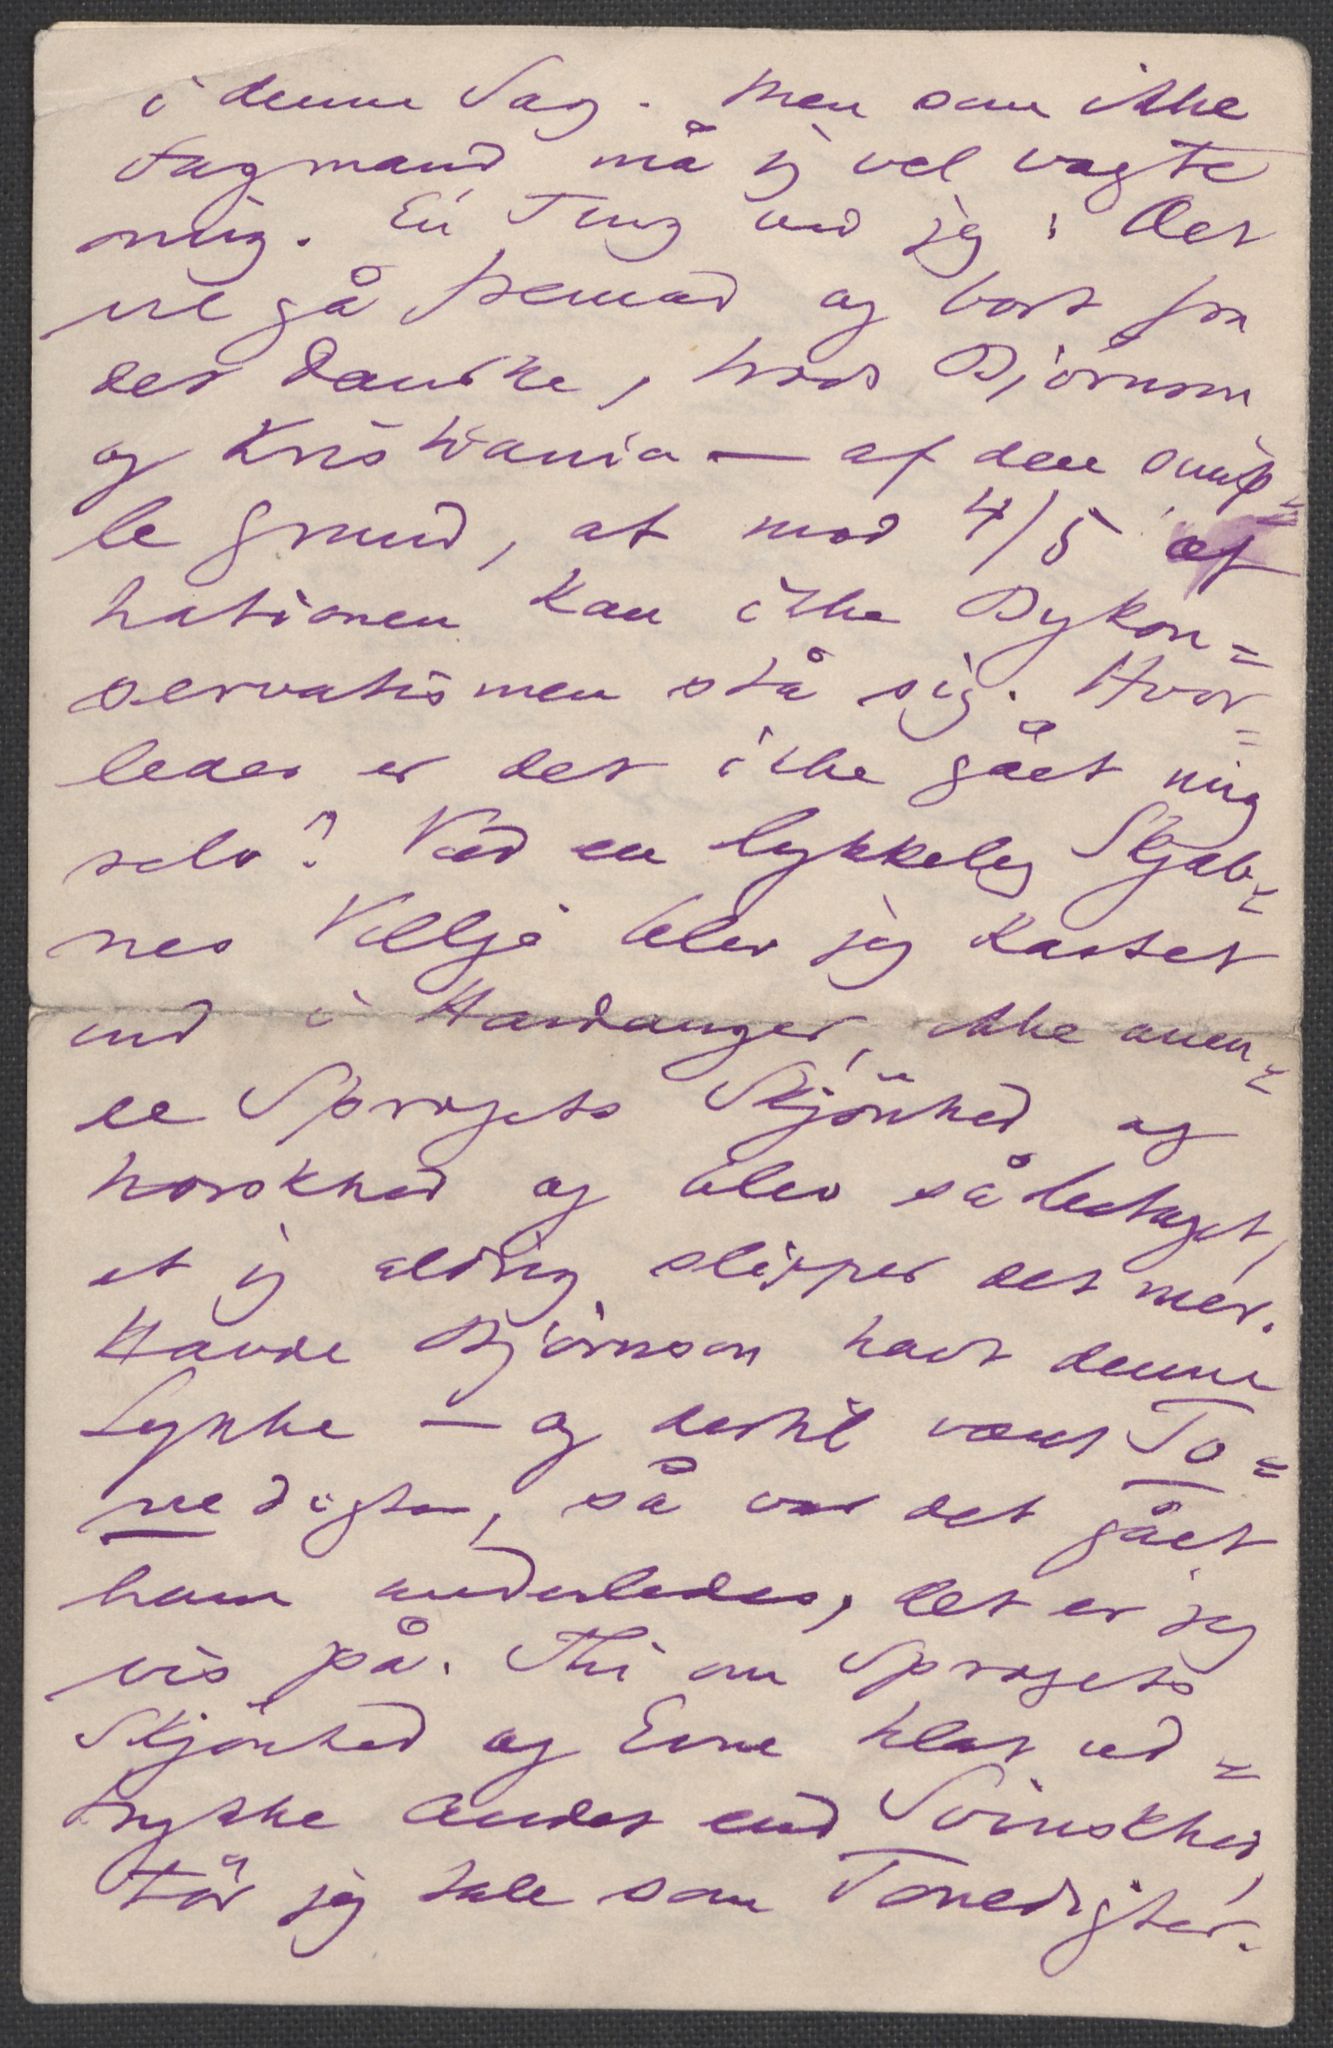 i denne Sag. Men som ikke
Fagmand må jeg vel vogte
mig. Én Ting ved jeg: Det
vil gå fremad og bort fra
det danske, trods Bjørnson
og Kristiania — af den simp=
le Grund, at mod 4/5 af
Nationen kan ikke Bykon=
servatismen stå sig. Hvor=
ledes er det ikke gået mig
selv? Ved en lykkelig Skjæb=
nes Vilje blev jeg kastet
ind i Hardanger, ikke anen=
de Sprogets Skjönhed og
Norskhed og blev så betaget,
at jeg aldrig slipper det mer.
Havde Björnson havt denne
Lykke — og dertil været To=
nedigter, så var det gået
ham anderledes, det er jeg
vis på. Thi om Sprogets
Skjönhed og Evne til at ud=
trykke Andet end Svinskhed,
tör jeg tale som Tonedigter.